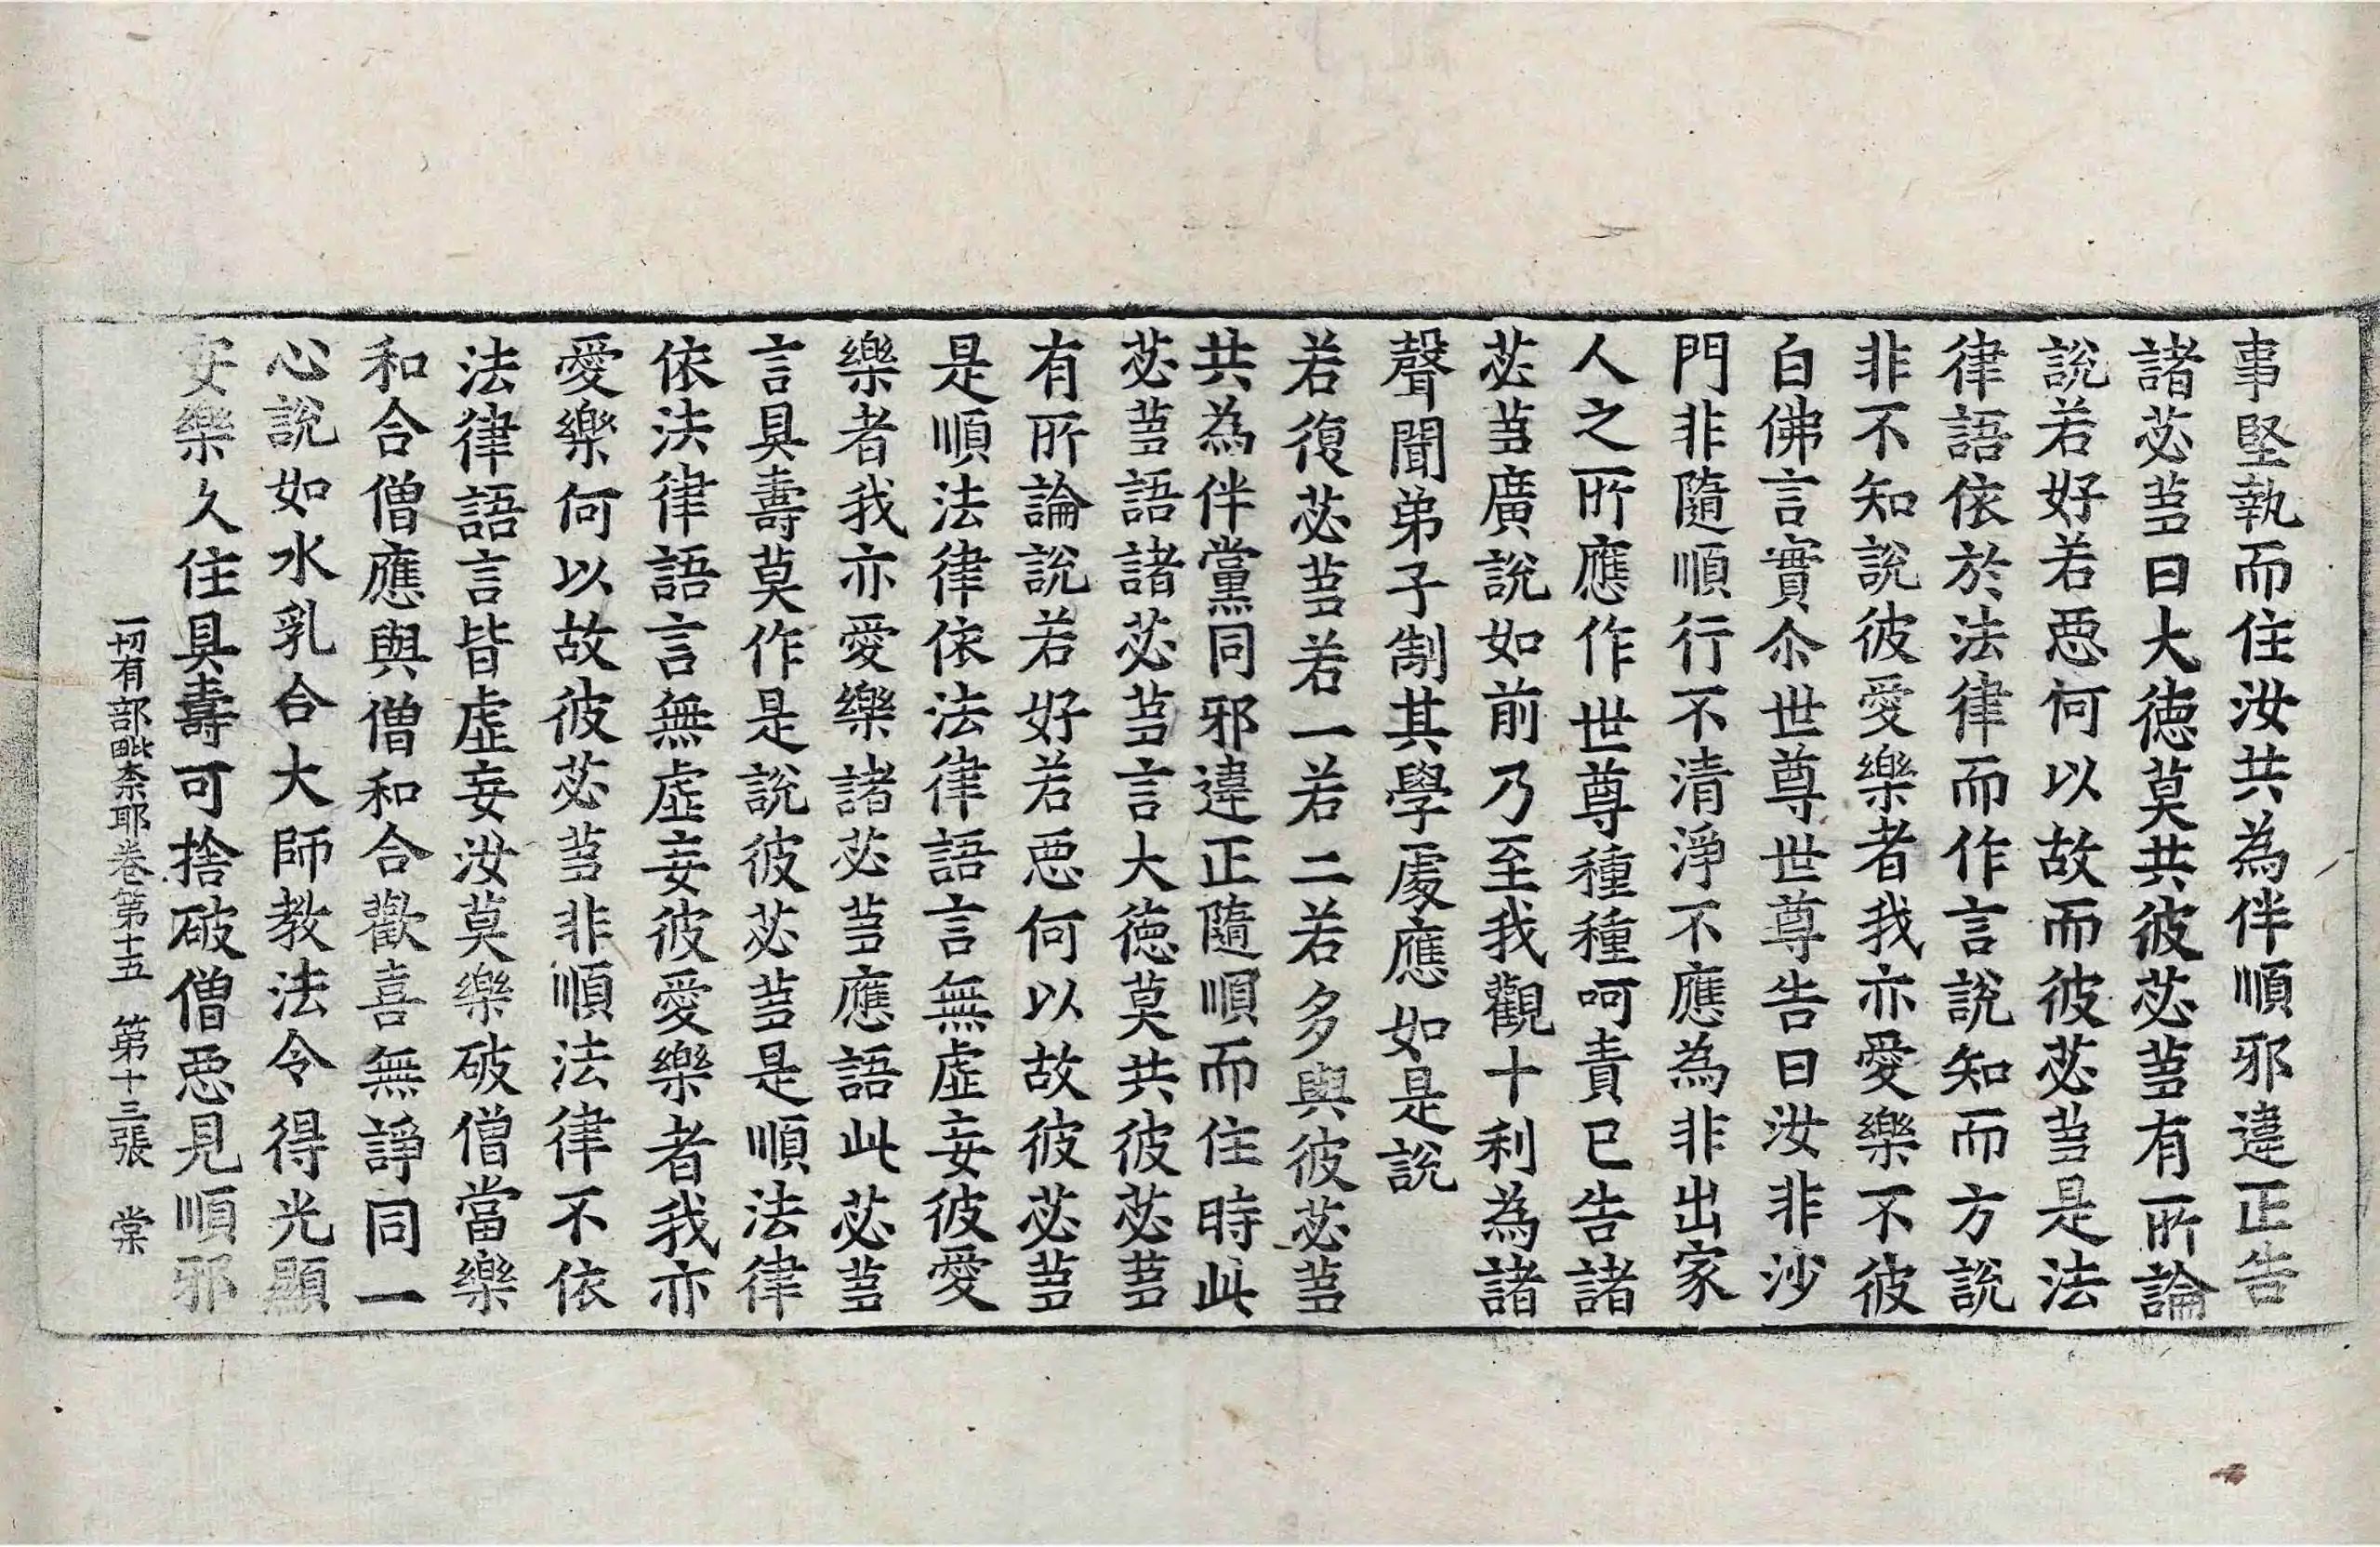 事堅執而住汝共為伴順邪違正告
諸苾芻曰大德莫共彼苾芻有所論
說若好若惡何以故而彼苾芻是法
律語依於法律而作言說知而方說
非不知說彼愛樂者我亦愛樂不彼
白佛言實尒世尊世尊告曰汝非沙
門非隨順行不清淨不應為非出家
人之所應作世尊種種呵責已告諸
苾芻廣說如前乃至我觀十利為諸
聲聞弟子制其學處應如是說
若復苾芻若一若二若多與彼苾芻
共為伴黨同邪違正隨順而住時此
苾芻語諸苾芻言大德莫共彼苾芻
有所論說若好若惡何以故彼苾芻
是順法律依法律語言無虛妄彼愛
樂者我亦愛樂諸苾芻應語此苾芻
言具壽莫作是說彼苾芻是順法律
依法律語言無虛妄彼愛樂者我亦
愛樂何以故彼苾芻非順法律不依
法律語言皆虛妄汝莫樂破僧當樂
和合僧應與僧和合歡喜無諍同一
心說如水乳合大師教法令得光顯
安樂久住具壽可捨破僧惡見順邪
一切有部毗奈耶卷第十五　第十三張　棠